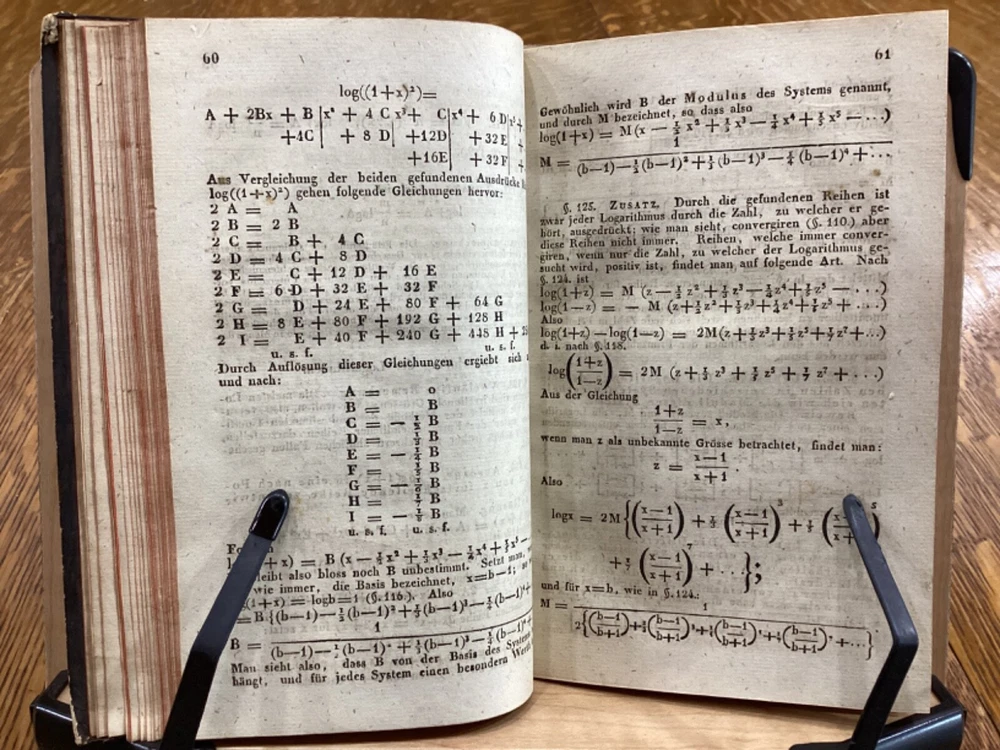 60
log((1+x)²)=
A + 2Bx + B|x² + 4 C x³+ C|x⁴ + 6 D|x⁵+
+4C| + 8 D| +12D| +32 E| +
+16E| + 32 F| +
Aus Vergleichung der beiden gefundenen Ausdrücke
log((1+x)²) gehen folgende Gleichungen hervor:
2 A = A
2 B = 2 B
2 C = B + 4 C
2 D = 4 C + 8 D
2 E = C + 12 D + 16 E
2 F = 6 D + 32 E + 32 F
2 G = D + 24 E + 80 F + 64 G
2 H = 8 E + 80 F + 192 G + 128 H
2 I = E + 40 F + 240 G + 448 H +
u. s. f. u. s. f.
Durch Auflösung dieser Gleichungen ergiebt sich
und nach:
A = 0
B = B
C = — ½ B
D = ⅓ B
E = — ¼ B
F = ⅕ B
G = — ⅙ B
H = ⅐ B
I = — ⅛ B
u. s. f. u. s. f.
+ x) = B (x — ½x² + ⅓x³ — ¼x⁴ + ⅕x⁵ —
bleibt also bloss noch B unbestimmt. Setzt man,
wie immer, die Basis bezeichnet, x=b—1; so
(1+x) = logb=1 (§. 116.). Also
=B{(b—1)—½(b—1)²+⅓(b—1)³—¼(b—1)⁴+
1
B = (b—1)—½(b—1)² + ⅓(b—1)³ — ¼(b—1)⁴+
Man sieht also, dass B von der Basis des Systems
hängt, und für jedes System einen besondern
61
Gewöhnlich wird B der Modulus des Systems genannt,
und durch M bezeichnet, so dass also
log(1+x) = M(x — ½x² + ⅓x³ — ¼x⁴ + ⅕x⁵ — ...)
1
M = (b—1)—½(b—1)²+⅓(b—1)³—¼(b—1)⁴+...
§. 125. ZUSATZ. Durch die gefundenen Reihen ist
zwar jeder Logarithmus durch die Zahl, zu welcher er ge-
hört, ausgedrückt; wie man sieht, convergiren (§. 110.) aber
diese Reihen nicht immer. Reihen, welche immer conver-
giren, wenn nur die Zahl, zu welcher der Logarithmus ge-
sucht wird, positiv ist, findet man auf folgende Art. Nach
§. 124. ist
log(1+z) = M (z—½z²+⅓z³—¼z⁴+⅕z⁵ — ...)
log(1—z) = M (z+½z²+⅓z³+¼z⁴+⅕z⁵ + ...)
Also
log(1+z) — log(1—z) = 2M(z+⅓z³+⅕z⁵+⅐z⁷+...)
d. i. nach §. 118.
log((1+z)/(1—z)) = 2M (z+⅓z³ + ⅕z⁵ + ⅐z⁷ + ...)
Aus der Gleichung
(1+z)/(1—z) = x,
wenn man z als unbekannte Grösse betrachtet, findet man:
z = (x—1)/(x+1).
Also
logx = 2M{((x—1)/(x+1)) + ⅓((x—1)/(x+1))³ + ⅕(x
+ ⅐((x—1)/(x+1))⁷ + ...};
und für x=b, wie in §. 124.:
M = 1
2{((b—1)/(b+1))+⅓((b—1)/(b+1))³+⅕((b—1)/(b+1))⁵+⅐((b—1)/(b+1))⁷+...}